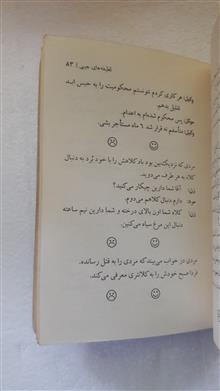 لطیفه‌های جیبی / ۸۳
وکیل: هر کاری کردم نتونستم محکومیت را به حبس ابد
تقلیل بدهم.
موکل: پس محکوم شده‌ام به اعدام.
وکیل: متأسفم نه قرار شد ۶ ماه مستأجر بشی.
مردی که نزدیک‌بین بود باد کلاهش را با خود بُرد به دنبال
کلاه به هر طرف می‌دوید.
زن: آقا شما دارین چیکار می‌کنید؟
مرد: دارم دنبال کلاهم می‌دوم.
زن: کلاه شما اون بالای درخته و شما دارین نیم ساعته
دنبال این مرغ سیاه می‌کنین.
مردی در خواب می‌بیند که مردی را به قتل رسانده.
فردا صبح خودش را به کلانتری معرفی می‌کند.